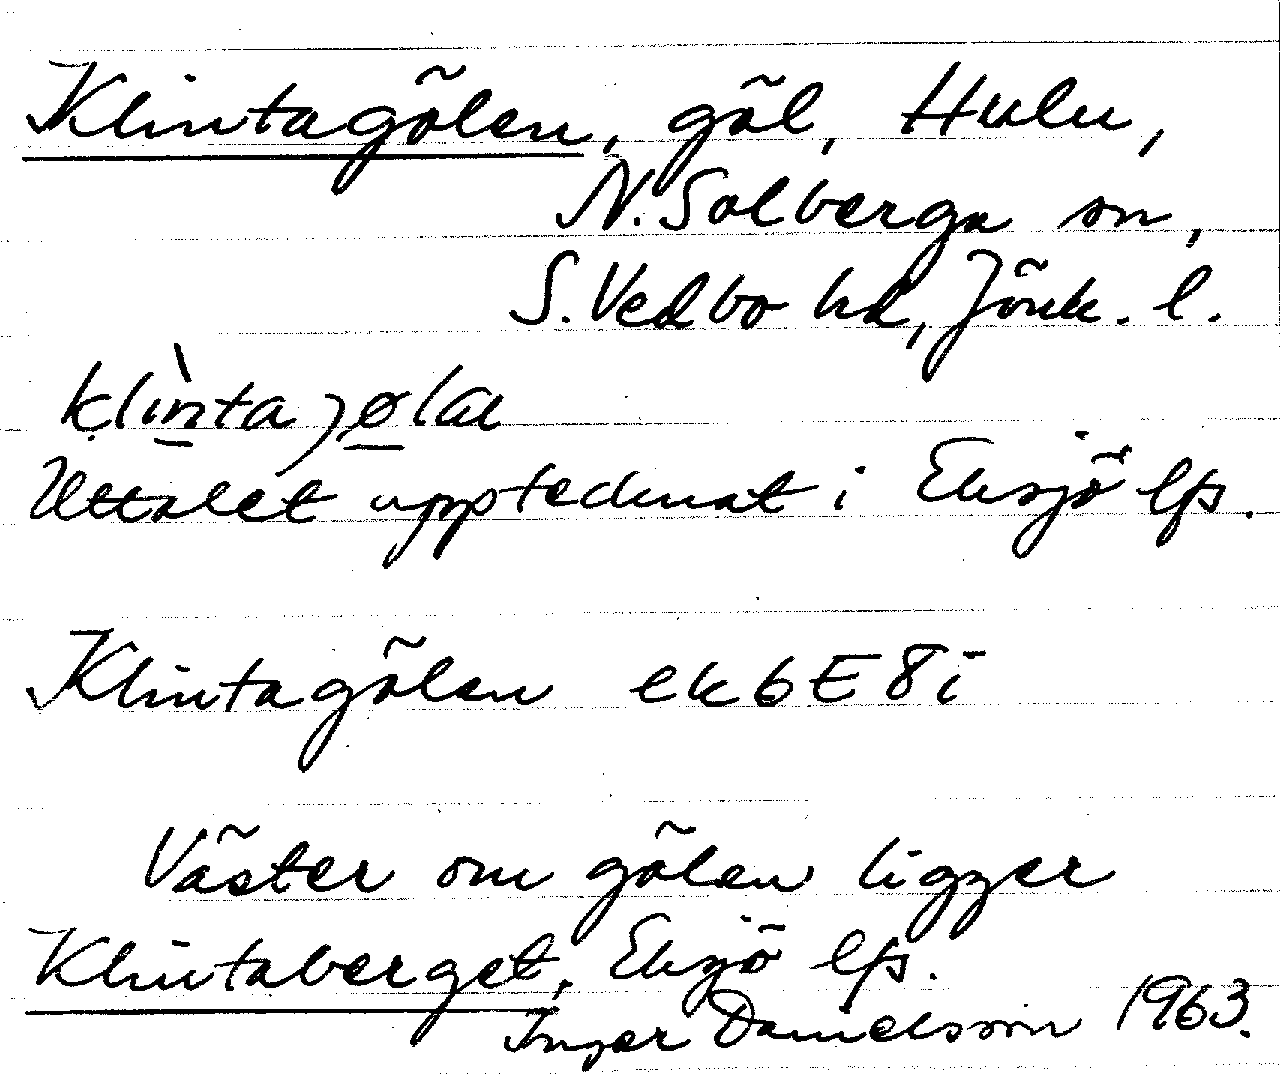 Klintagölen, göl, Hulu,
N. Solberga sn,
S. Vedbo hd, Jönk. l.
klìnta jølal
Uttalet upptecknat i Eksjö lfs.
Klintagölen ek6E8i
Väster om gölen ligger
Klintaberget, Eksjö lfs.
Inger Danielsson 1963.